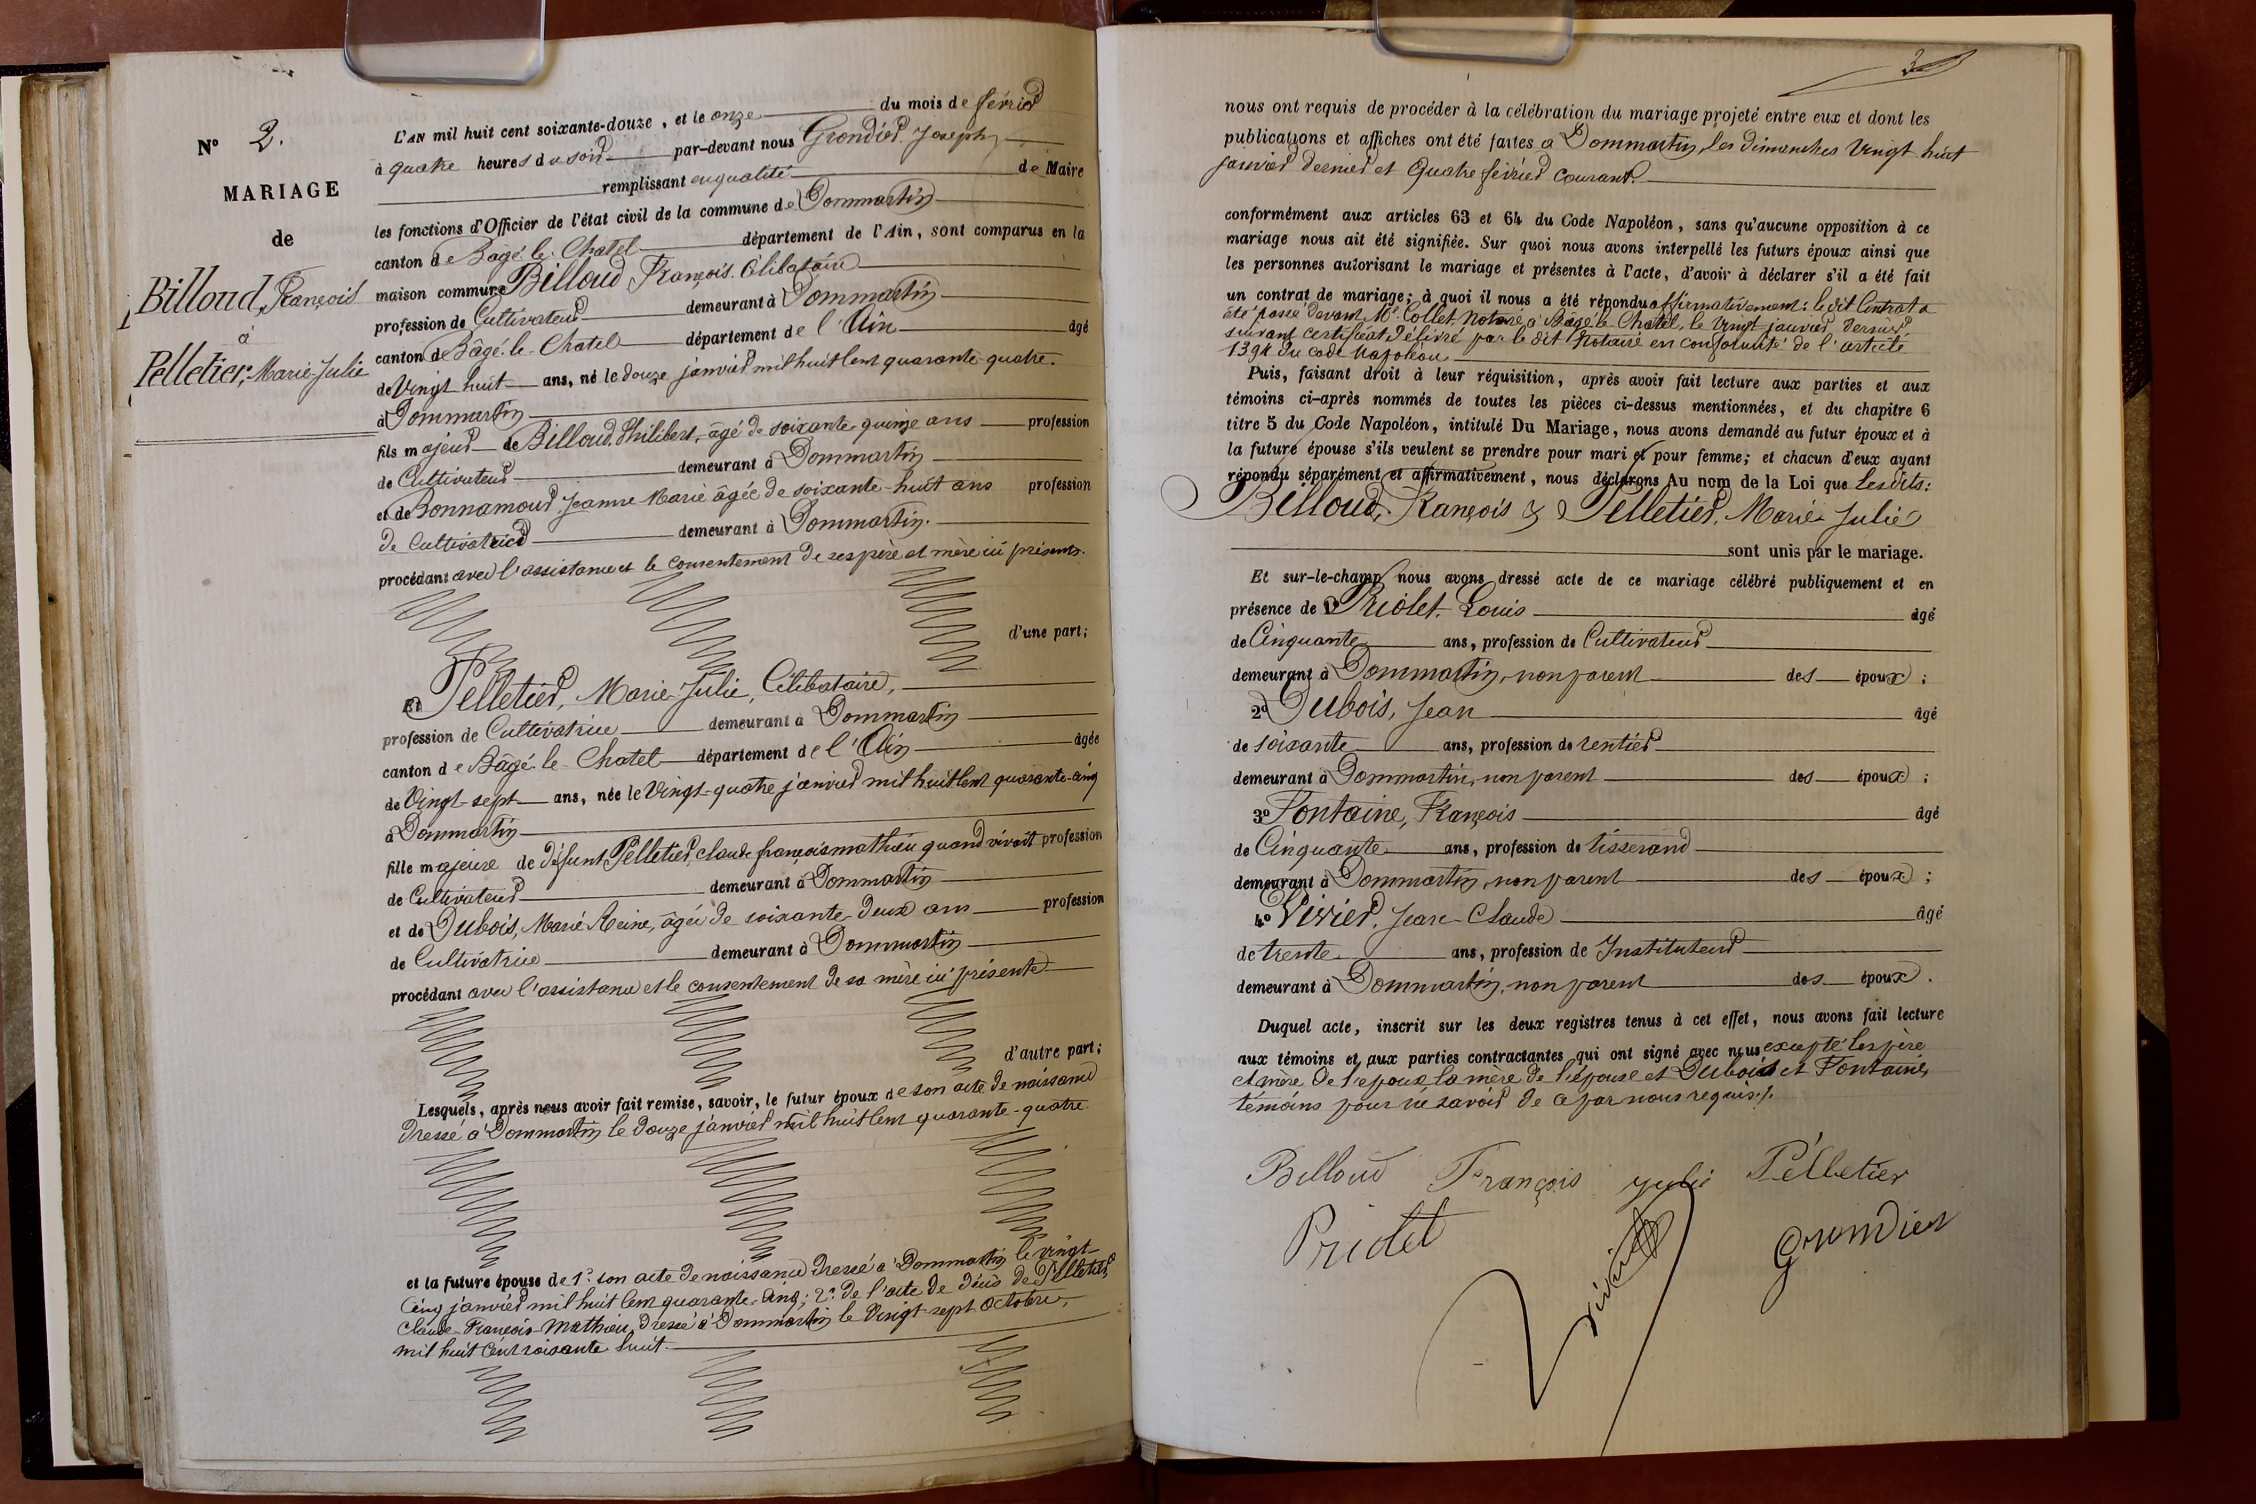 N° 2.
MARIAGE
de
Billoud, François
à
Pelletier, Marie-Julie
L'AN mil huit cent soixante-douze, et le onze du mois de février
à quatre heures du soir par-devant nous Grondier Joseph
remplissant en qualité de Maire
les fonctions d'Officier de l'état civil de la commune de Dommartin
canton de Bâgé-le-Chatel département de l'Ain, sont comparus en la
maison commune Billoud François, Célibataire
profession de Cultivateur demeurant à Dommartin
canton de Bâgé-le-Chatel département de l'Ain âgé
de Vingt huit ans, né le douze janvier mil huit Cent quarante-quatre.
à Dommartin
fils majeur de Billoud, Philibert, âgé de soixante-quinze ans profession
de Cultivateur demeurant à Dommartin
et de Bonnamour Jeanne Marie âgée de soixante-huit ans profession
de Cultivatrice demeurant à Dommartin.
procédant avec l'assistance et le consentement de ses père et mère ici présents.
d'une part;
Et Pelletier, Marie-Julie, Célibataire,
profession de Cultivatrice demeurant à Dommartin
canton de Bâgé-le-Chatel département de l'Ain âgée
de Vingt-sept ans, née le Vingt-quatre janvier mil huit Cent quarante-cinq
à Dommartin
fille majeure de défunt Pelletier, claude françois mathieu quand vivait profession
de Cultivateur demeurant à Dommartin
et de Dubois, Marie Reine, âgée de soixante-deux ans profession
de Cultivatrice demeurant à Dommartin
procédant avec l'assistance et le consentement de sa mère ici présente
d'autre part;
Lesquels, après nous avoir fait remise, savoir, le futur époux de son acte de naissance
dressé à Dommartin le douze janvier mil huit Cent quarante-quatre.
et la future épouse de 1°: son acte de naissance dressé à Dommartin le vingt-
Cinq janvier mil huit Cent quarante-Cinq; 2°: de l'acte de décès de Pelletier,
Claude-François-Mathieu, dressé à Dommartin le Vingt-sept Octobre,
mil huit Cent soixante huit.
3
nous ont requis de procéder à la célébration du mariage projeté entre eux et dont les
publications et affiches ont été faites à Dommartin, les dimanches Vingt huit
janvier dernier et Quatre février courant.
conformément aux articles 63 et 64 du Code Napoléon, sans qu'aucune opposition à ce
mariage nous ait été signifiée. Sur quoi nous avons interpellé les futurs époux ainsi que
les personnes autorisant le mariage et présentes à l'acte, d'avoir à déclarer s'il a été fait
un contrat de mariage; à quoi il nous a été répondu affirmativement: le dit Contrat a
été passé devant Me Collet, Notaire à Bâgé-le-Chatel, le Vingt janvier dernier
suivant certificat délivré par le dit Notaire en conformité de l'article
1394 du code Napoléon
Puis, faisant droit à leur réquisition, après avoir fait lecture aux parties et aux
témoins ci-après nommés de toutes les pièces ci-dessus mentionnées, et du chapitre 6
titre 5 du Code Napoléon, intitulé Du Mariage, nous avons demandé au futur époux et à
la future épouse s'ils veulent se prendre pour mari et pour femme; et chacun d'eux ayant
répondu séparément et affirmativement, nous déclarons Au nom de la Loi que Les dits:
Billoud, François & Pelletier, Marie-Julie
sont unis par le mariage.
Et sur-le-champ nous avons dressé acte de ce mariage célébré publiquement et en
présence de 1° Priolet, Louis âgé
de Cinquante ans, profession de Cultivateur
demeurant à Dommartin, non parent des époux;
2° Dubois, Jean âgé
de soixante ans, profession de rentier
demeurant à Dommartin, non parent des époux;
3° Fontaine, François âgé
de Cinquante ans, profession de tisserand
demeurant à Dommartin, non parent des époux;
4° Vivier, Jean-Claude âgé
de trente ans, profession de Instituteur
demeurant à Dommartin, non parent des époux.
Duquel acte, inscrit sur les deux registres tenus à cet effet, nous avons fait lecture
aux témoins et aux parties contractantes qui ont signé avec nous excepté les père
et mère de l'époux, la mère de l'épouse et Dubois et Fontaine,
témoins pour ne savoir de ce par nous requis./.
Billoud François Julie Pélletier
Priolet Vivier Grondier